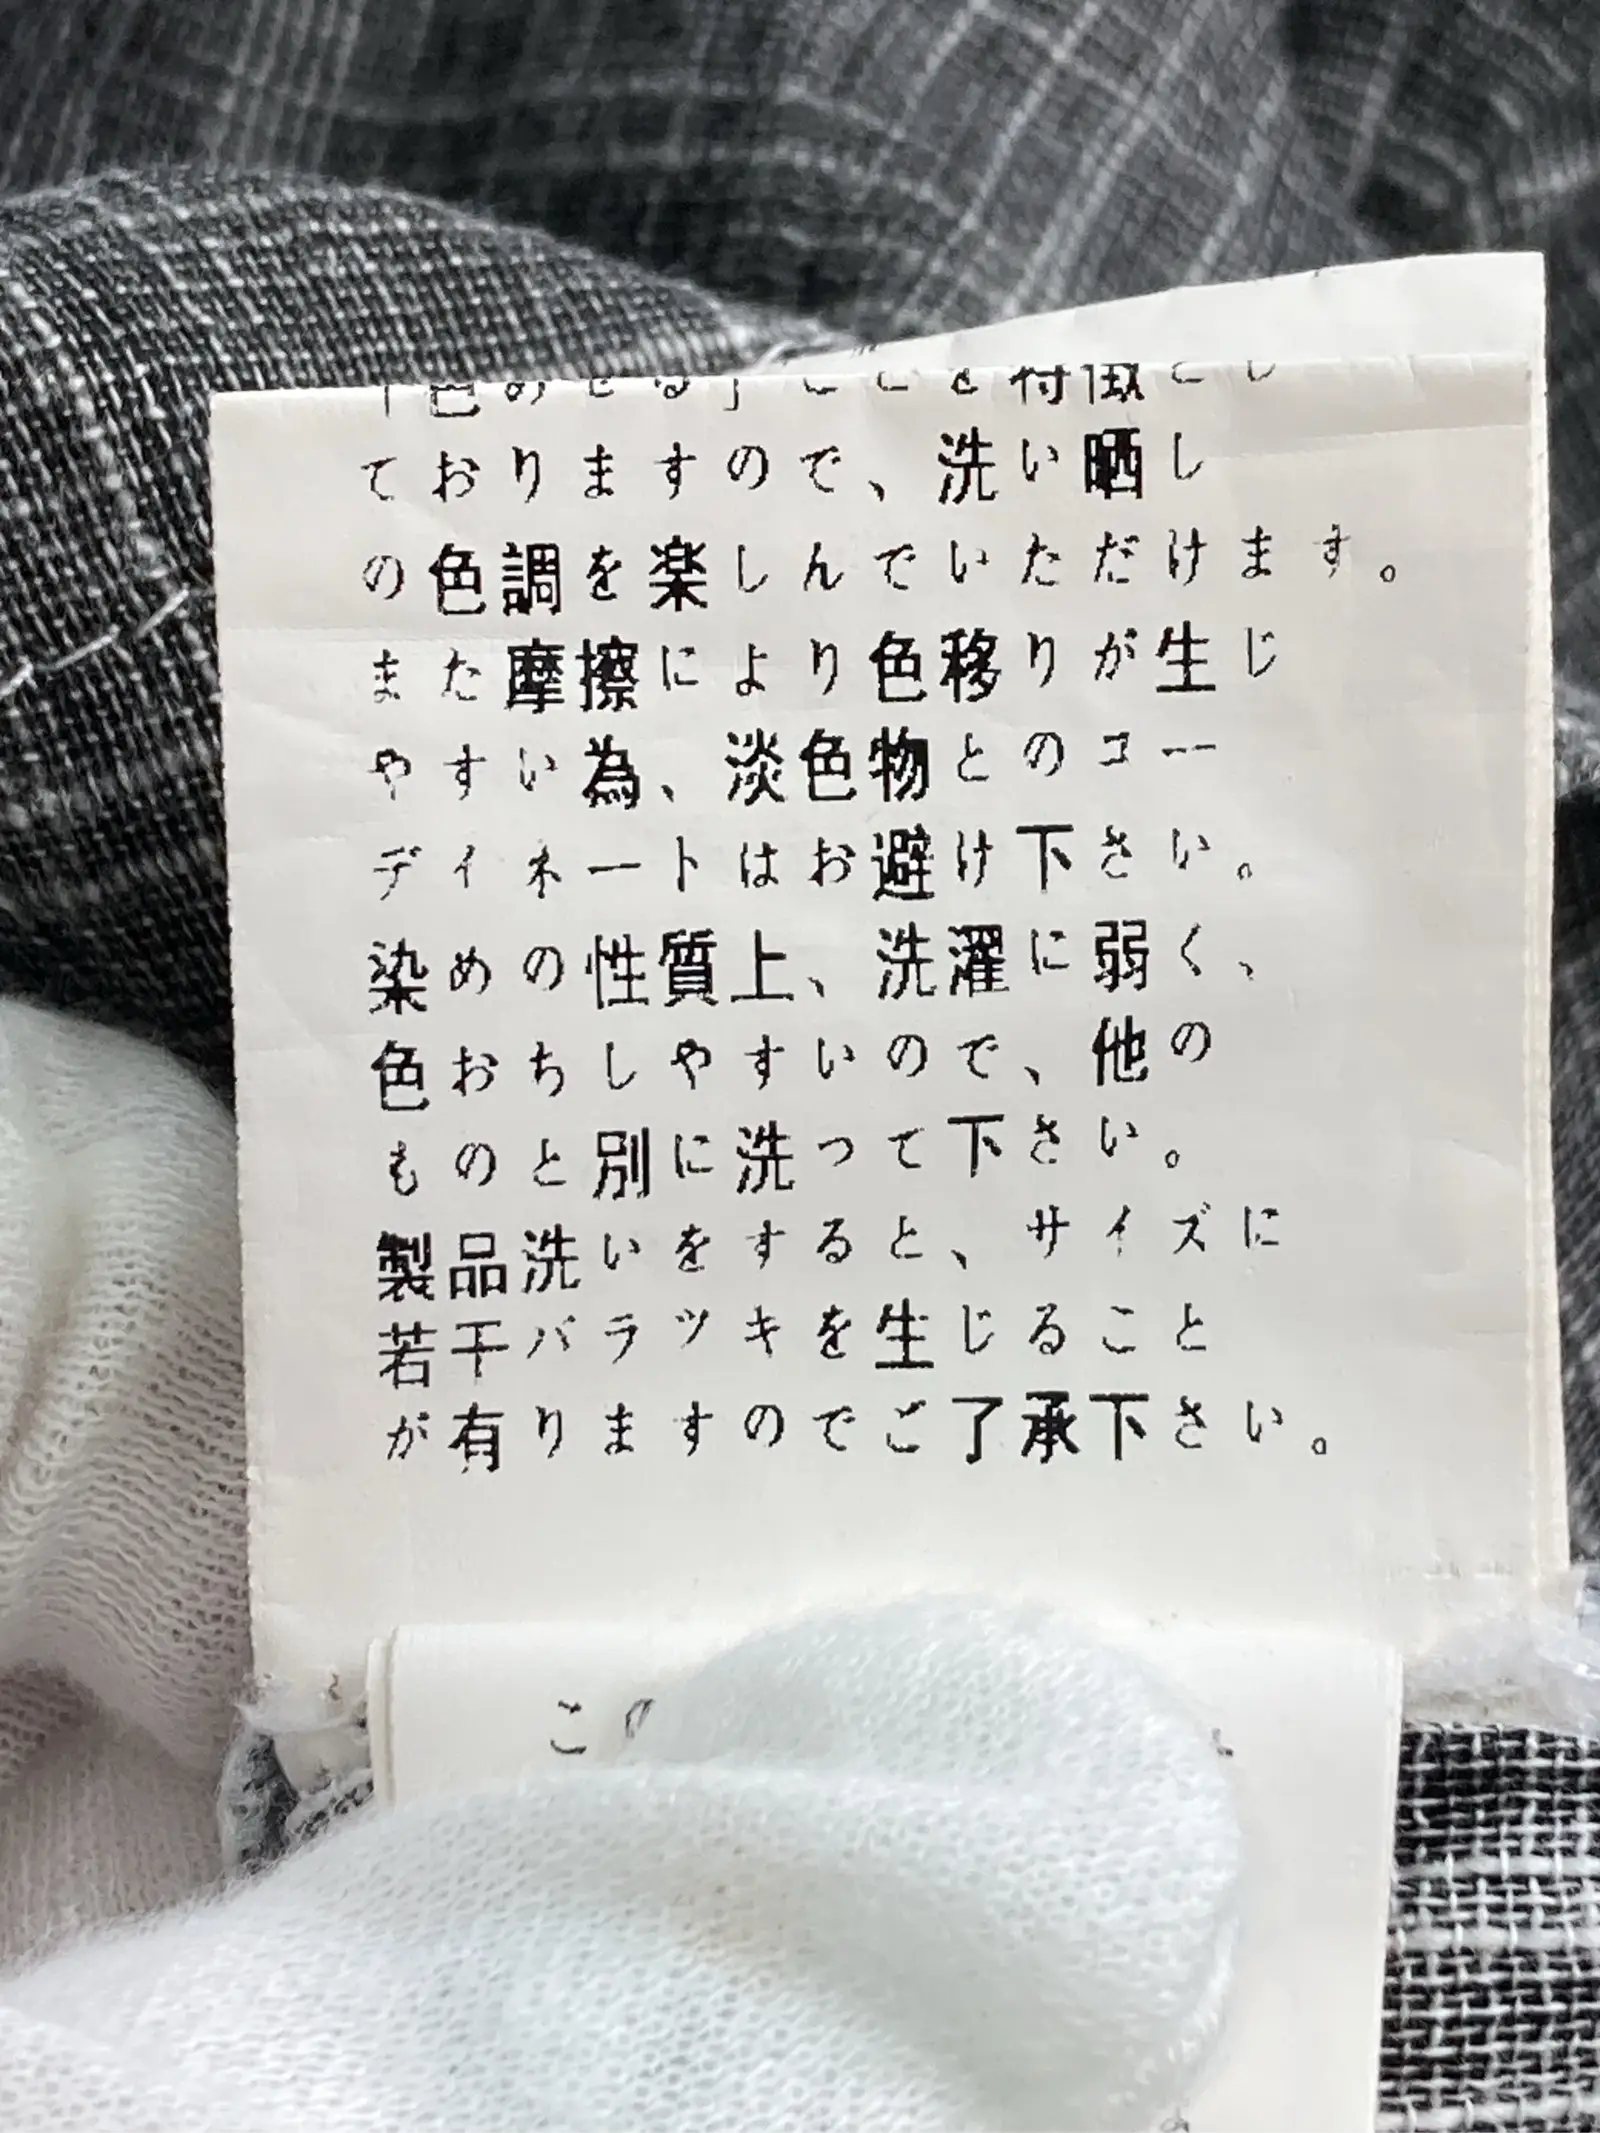 「色あせる」ことを特徴とし
ておりますので、洗い晒し
の色調を楽しんでいただけます。
また摩擦により色移りが生じ
やすい為、淡色物とのコー
ディネートはお避け下さい。
染めの性質上、洗濯に弱く、
色おちしやすいので、他の
ものと別に洗って下さい。
製品洗いをすると、サイズに
若干バラツキを生じること
が有りますのでご了承下さい。
こ